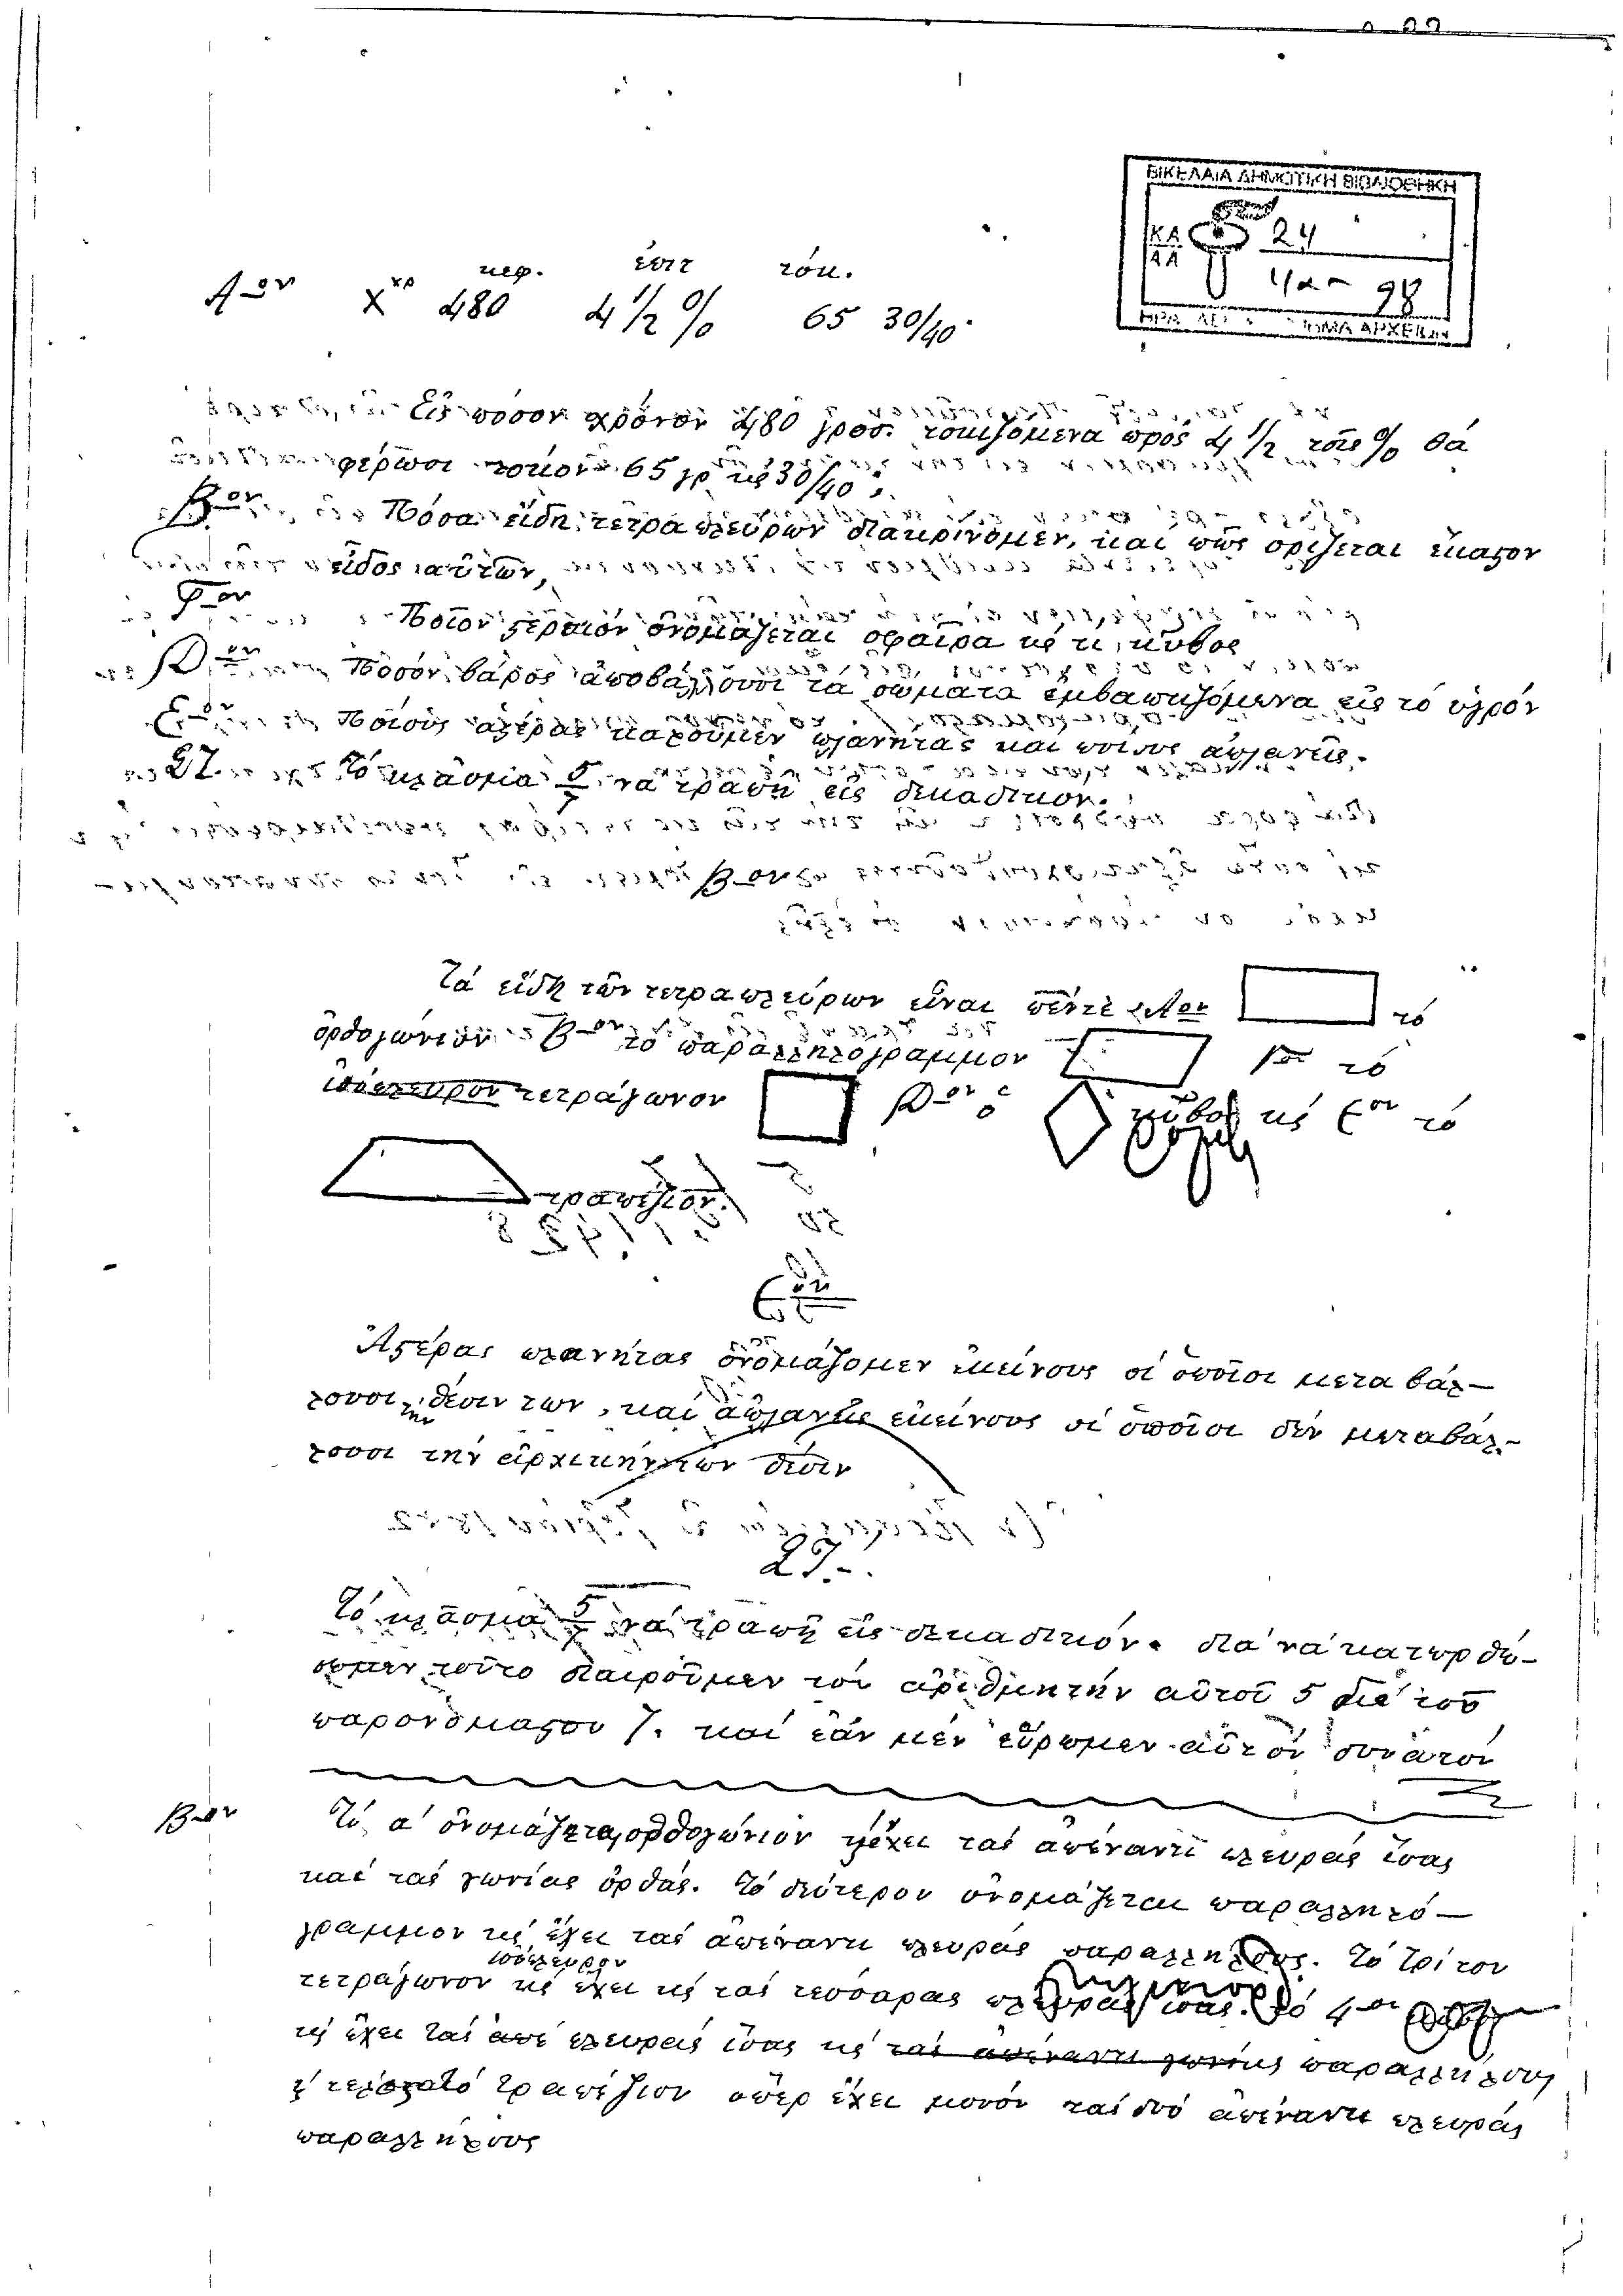 ΒΙΚΕΛΑΙΑ ΔΗΜΟΤΙΚΗ ΒΙΒΛΙΟΘΗΚΗ
24
98
ΤΜΗΜΑ ΑΡΧΕΙΩΝ
κεφ. ἐπιτ τόκ.
Α-ον Χ 480 4 1/2 % 65 30/40
Εἰς πόσον χρόνον 480 γροσ. τοκιζόμενα πρός 4 1/2 τοῖς % θά
φέρωσι τόκον 65 γρ κὲ 30/40;
Β-ον Πόσα εἴδη τετραπλεύρων διακρίνομεν, καί πῶς ὁρίζεται ἕκαστον
εἶδος αὐτῶν,
Γ-ον Ποῖον στερεόν ὀνομάζεται σφαῖρα κὲ τι κῦβος
Δ-ον Πόσον βάρος ἀποβάλλουσι τά σώματα ἐμβαπτιζόμενα εἰς τό ὑγρόν
Ε-ον Ποίους ἀστέρας καλοῦμεν πλανήτας καί ποίους ἀπλανεῖς.
ΣΤ. Τό κλάσμα 5/7 νά τραπῇ εἰς δεκαδικόν.
Β-ον
Τά εἴδη τῶν τετραπλεύρων εἶναι πέντε Αον τό
ὀρθογώνιον Β-ον τό παραλληλόγραμμον Γον τό
ἰσόπλευρον τετράγωνον Δ-ον ὁ κῦβος κὲ Εον τό
τραπέζιον.
Ε-ον
Ἀστέρας πλανήτας ὀνομάζομεν ἐκείνους οἱ ὁποῖοι μεταβάλ-
λουσι τήν θέσιν των, καί ἀπλανεῖς ἐκείνους οἱ ὁποῖοι δέν μεταβάλ-
λουσι τήν ἀρχικήν των θέσιν
ΣΤ.-
Τό κλάσμα 5/7 νά τραπῇ εἰς δεκαδικόν. διά νά κατορθώ-
σωμεν τοῦτο διαιροῦμεν τόν ἀριθμητήν αὐτοῦ 5 διά τοῦ
παρονομαστοῦ 7. καί ἐάν μέν εὕρωμεν αὐτόν
Β-ον Τό α' ὀνομάζεται ὀρθογώνιον κὲ ἔχει τάς ἀπέναντι πλευράς ἴσας
καί τάς γωνίας ὀρθάς. Τό δεύτερον ὀνομάζεται παραλληλό-
γραμμον κὲ ἔχει τάς ἀπέναντι πλευράς παραλλήλους. Τό τρίτον
ἰσόπλευρον
τετράγωνον κὲ ἔχει κὲ τάς τέσσαρας πλευράς ἴσας. Τό 4-ον
κὲ ἔχει τάς ἀπέ πλευράς ἴσας κὲ τάς ἀπέναντι γωνίας παραλλήλους
τό τραπέζιον ὅπερ ἔχει μονόν τάς δυό ἀπέναντι πλευράς
παραλλήλους